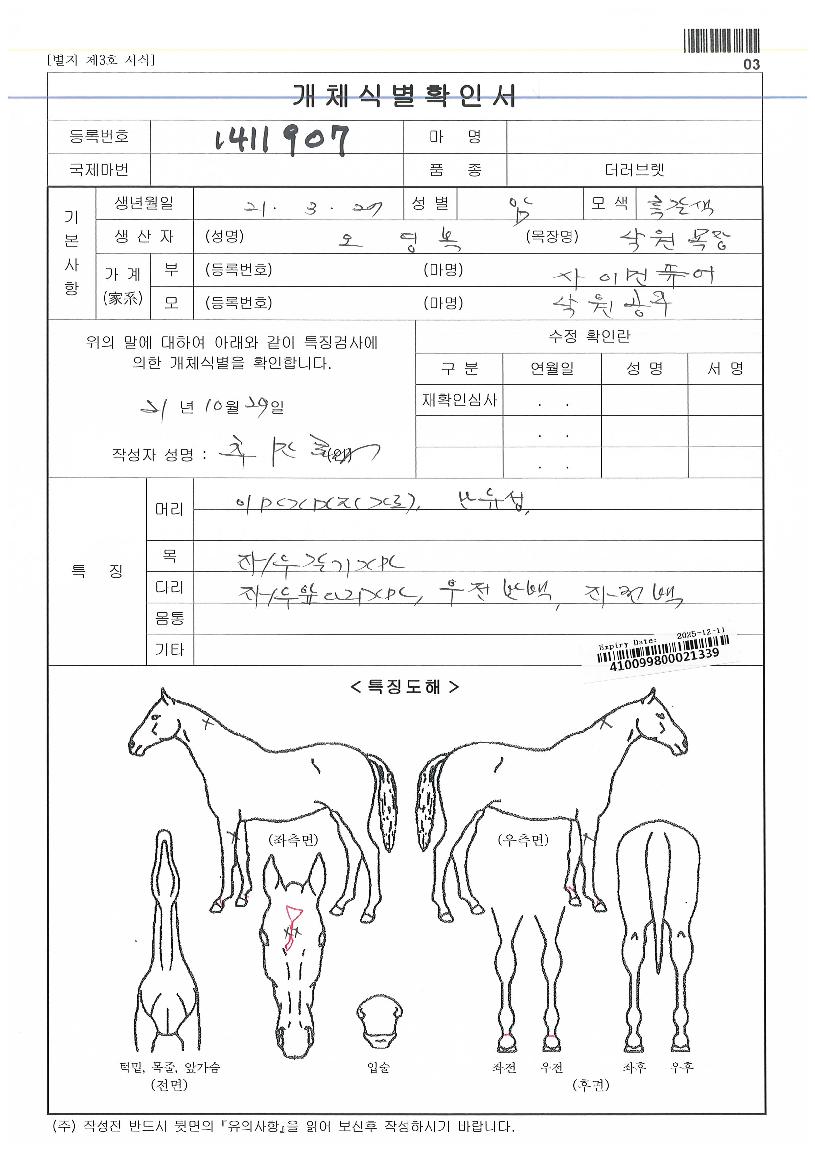 [별지 제3호 서식]
03
개체식별확인서
등록번호 1411907 마 명
국제마번 품 종 더러브렛
기본사항
생년월일 21. 3. 27 성별 암 모색 흑갈색
생산자 (성명) 오 영 복 (목장명) 삭원목장
가계(家系) 부 (등록번호) (마명) 사이먼퓨어
모 (등록번호) (마명) 삭원공주
위의 말에 대하여 아래와 같이 특징검사에
의한 개체식별을 확인합니다.
21년 10월 29일
작성자 성명 : (인)
수정 확인란
구분 연월일 성명 서명
재확인심사 . .
. .
. .
특 징
머리
목 좌/우
다리 좌/우앞다리
몸통
기타
Expiry Date: 2035-12-11
410099800021339
< 특징도해 >
(좌측면) (우측면)
턱밑, 목줄, 앞가슴 입술 좌전 우전 좌후 우후
(전면) (후면)
(주) 작성전 반드시 뒷면의 『유의사항』을 읽어 보신후 작성하시기 바랍니다.